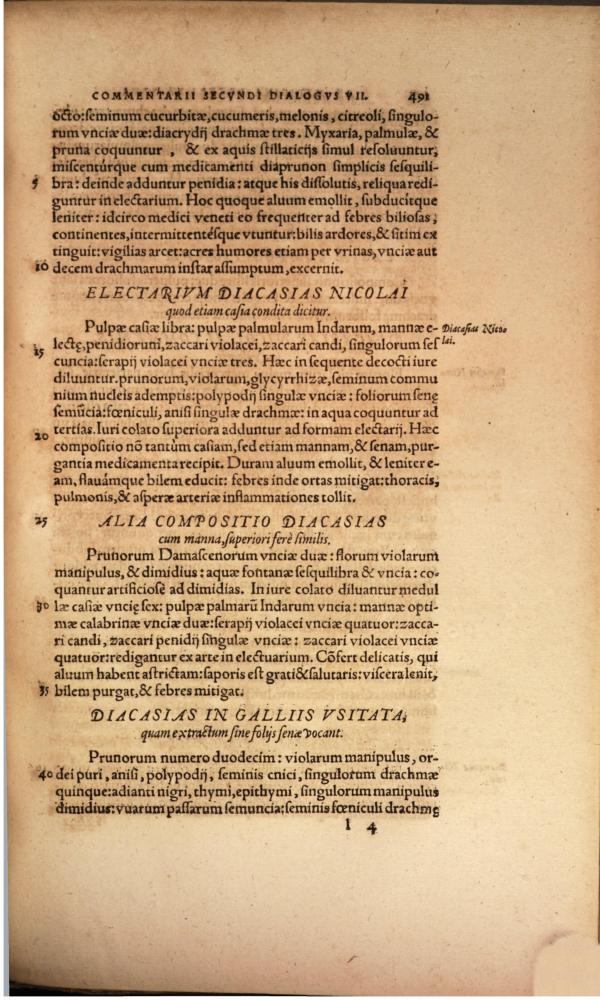 COMMENTARII SECVNDI DIALOGVS VII. 491
octo:seminum cucurbitæ,cucumeris,melonis, citreoli, singulo-
rum vnciæ duæ:diacrydij drachmæ tres. Myxaria, palmulæ, &
pruna coquuntur , & ex aquis stillaticijs simul resoluuntur,
miscentúrque cum medicamenti diaprunon simplicis sesquili-
5 bra: deinde adduntur penidia: atque his dissolutis, reliqua redi-
guntur in electarium. Hoc quoque aluum emollit, subducitque
leniter: idcirco medici veneti eo frequenter ad febres biliosas,
continentes,intermittentésque vtuntur:bilis ardores,& sitim ex
tinguit: vigilias arcet:acres humores etiam per vrinas, vnciæ aut
10 decem drachmarum instar assumptum, excernit.
ELECTARIVM DIACASIAS NICOLAI
quod etiam casia condita dicitur.
Pulpæ casiæ libra: pulpæ palmularum Indarum, mannæ e- Diacasias Nico
15 lectę,penidiorum,zaccari violacei,zaccari candi, singulorum ses lai.
cuncia:serapij violacei vnciæ tres. Hæc in sequente decocti iure
diluuntur.prunorum,violarum,glycyrrhizæ,seminum commu
nium nucleis ademptis:polypodij singulæ vnciæ: foliorum senę
semūcia:fœniculi, anisi singulæ drachmæ: in aqua coquuntur ad
20 tertías.Iuri colato superiora adduntur ad formam electarij. Hæc
compositio nō tantùm casiam,sed etiam mannam,& senam,pur-
gantia medicamenta recipit. Duram aluum emollit, & leniter e-
am, flauámque bilem educit: febres inde ortas mitigat:thoracis,
pulmonis,& asperæ arteriæ inflammationes tollit.
25 ALIA COMPOSITIO DIACASIAS
cum manna,superiori ferè similis.
Prunorum Damascenorum vnciæ duæ : florum violarum
manipulus, & dimidius : aquæ fontanæ sesquilibra & vncia: co-
quantur artificiosè ad dimidias. In iure colato diluantur medul
30 læ casiæ vncię sex: pulpæ palmarū Indarum vncia: mannæ opti-
mæ calabrinæ vnciæ duæ:serapij violacei vnciæ quatuor:zacca-
ri candi, zaccari penidij singulæ vnciæ: zaccari violacei vnciæ
quatuor:redigantur ex arte in electuarium. Cōfert delicatis, qui
aluum habent astrictam:saporis est grati&salutaris:viscera lenit,
35 bilem purgat,& febres mitigat.
DIACASIAS IN GALLIIS VSITATA,
quam extractum sine folijs senæ vocant.
Prunorum numero duodecim: violarum manipulus, or-
40 dei puri, anisi, polypodij, seminis cnici, singulorum drachmæ
quinque:adianti nigri, thymi,epithymi, singulorum manipulus
dimidius:vuarum passarum semuncia:seminis fœniculi drachmę
l 4